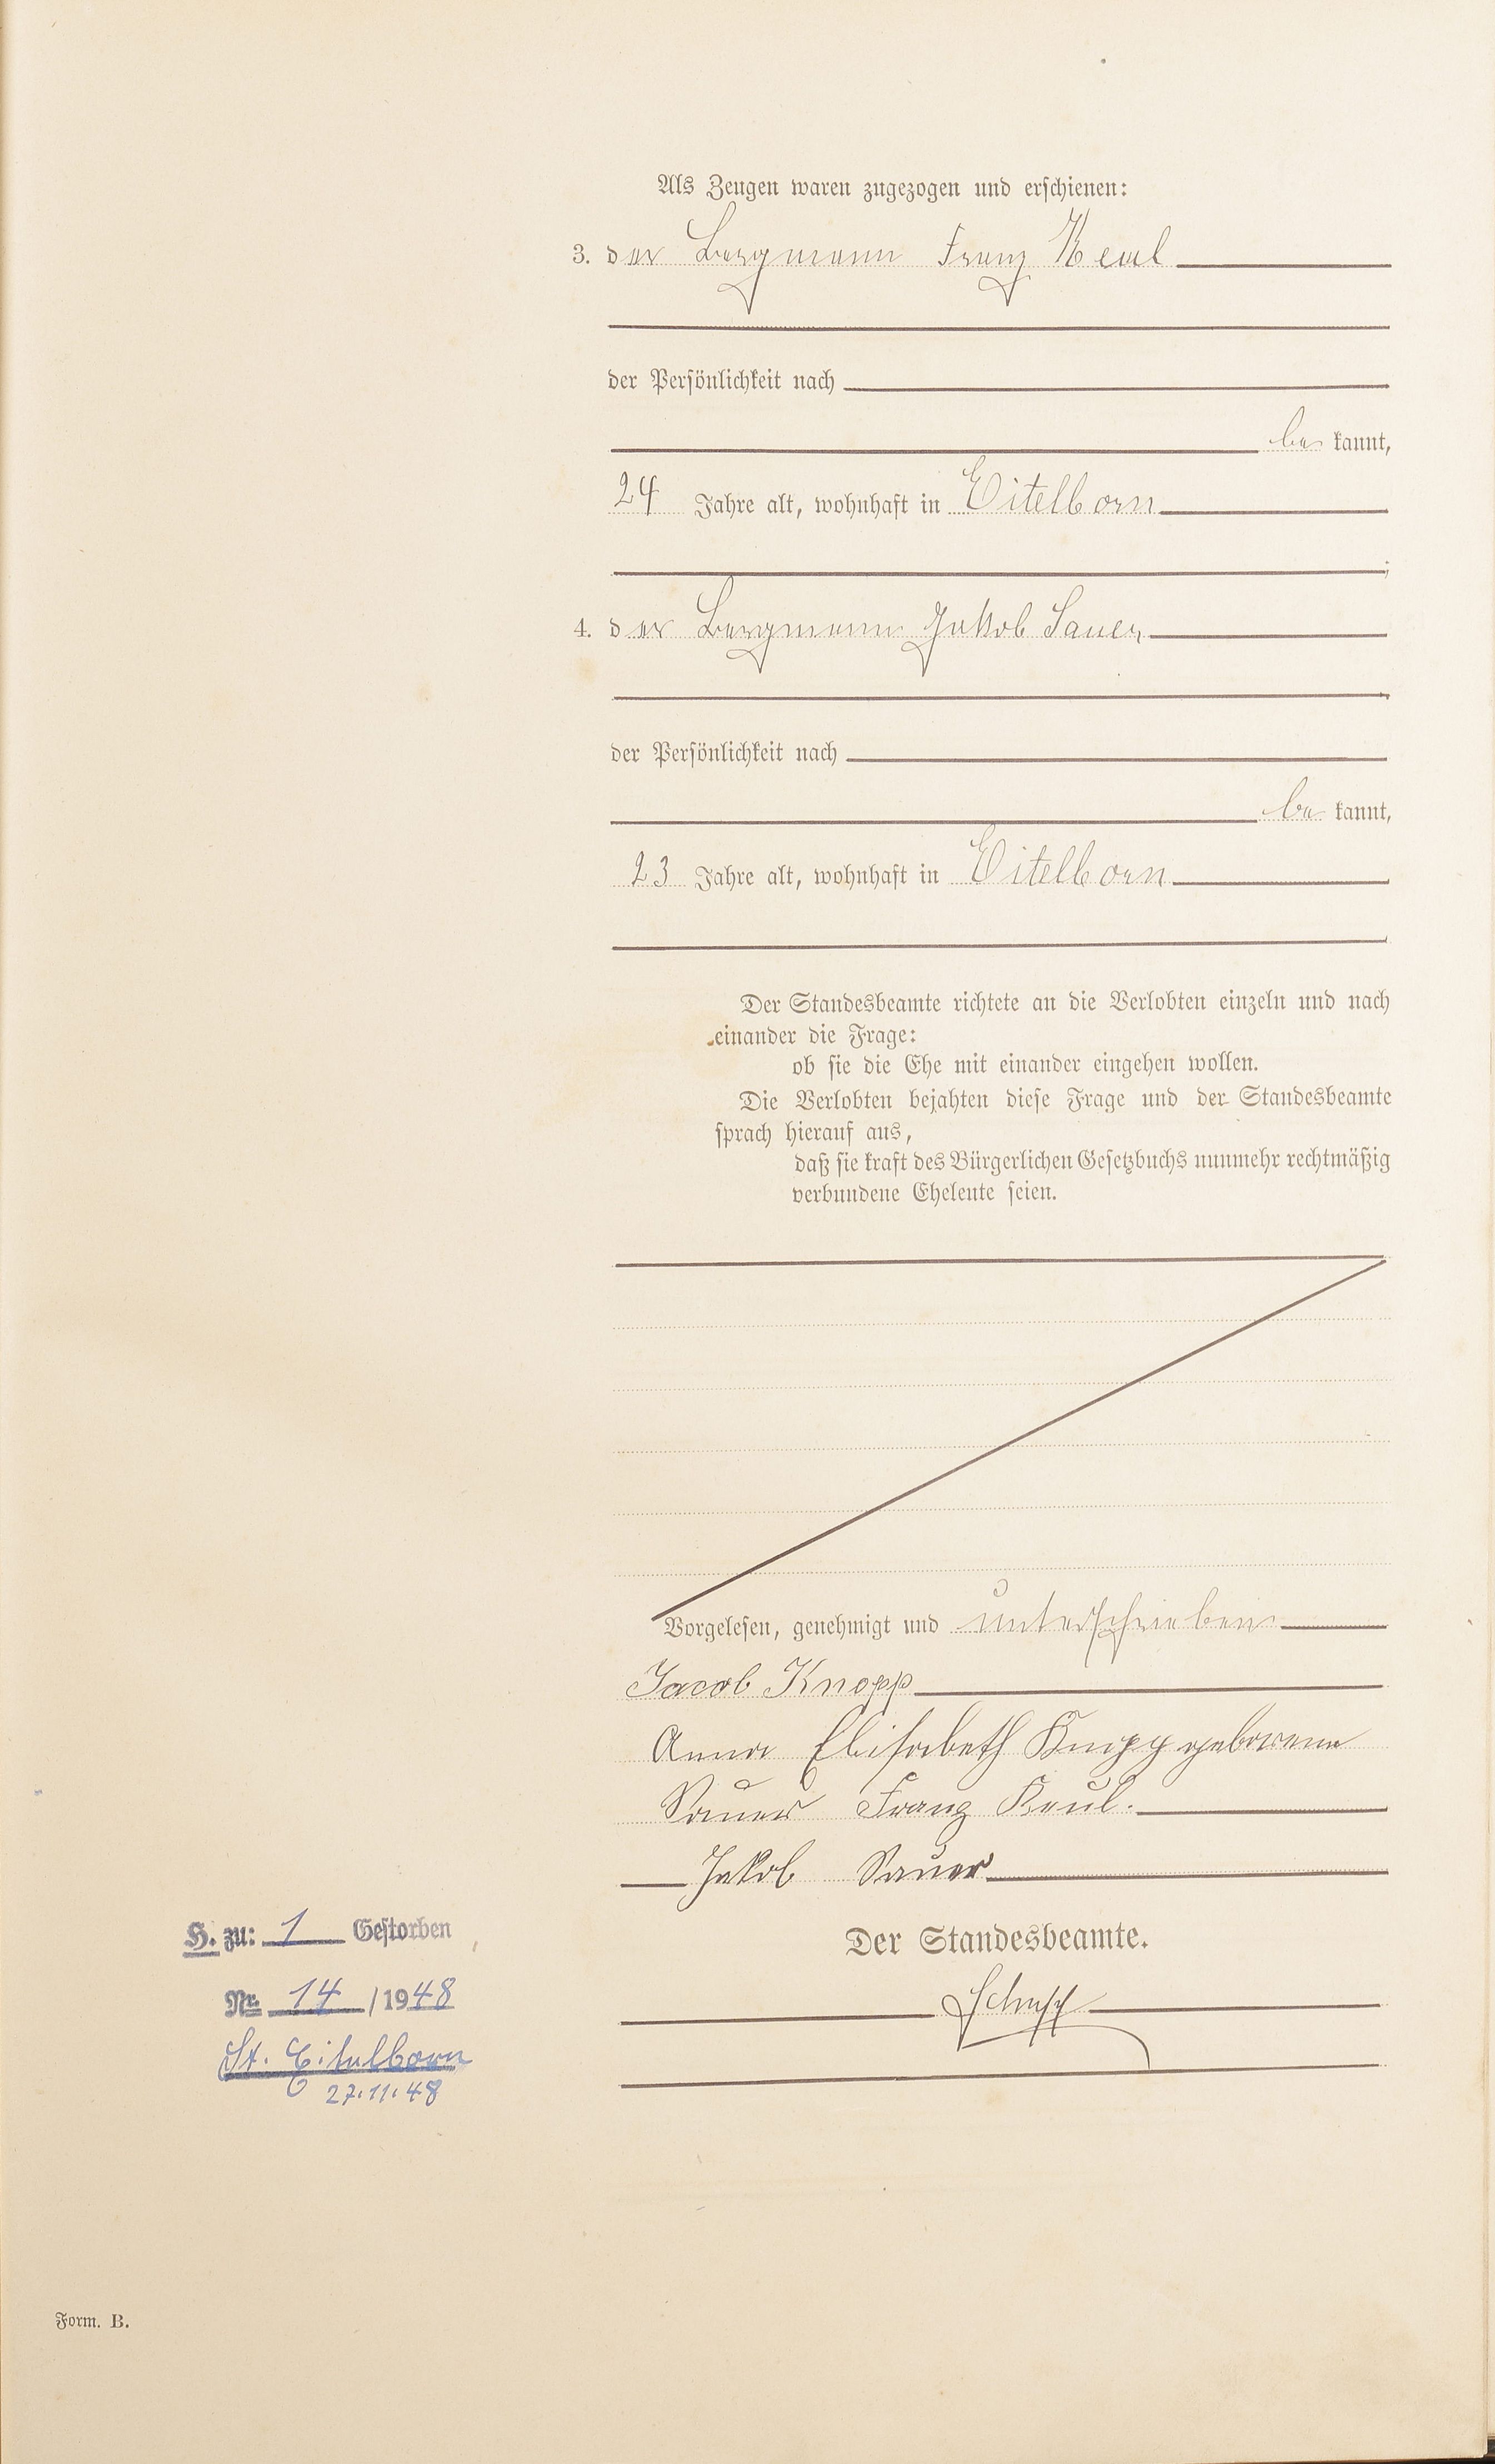 Als Zeugen waren zugezogen und erschienen:
3. der Bergmann Franz Keul
der Persönlichkeit nach
be kannt,
24 Jahre alt, wohnhaft in Eitelborn
;
4. der Bergmann Jakob Sauer
der Persönlichkeit nach
be kannt,
23 Jahre alt, wohnhaft in Eitelborn
Der Standesbeamte richtete an die Verlobten einzeln und nach
einander die Frage:
ob sie die Ehe mit einander eingehen wollen.
Die Verlobten bejahten diese Frage und der Standesbeamte
sprach hierauf aus,
daß sie kraft des Bürgerlichen Gesetzbuchs nunmehr rechtmäßig
verbundene Eheleute seien.
Vorgelesen, genehmigt und unterschrieben
Jacob Knopp
Anna Elisabeth Knopp geborene
Sauer Franz Keul.
Jakob Sauer
Der Standesbeamte.
H. zu: 1 Gestorben
Nr. 14 / 1948
St. Eitelborn
27.11.48
Form. B.